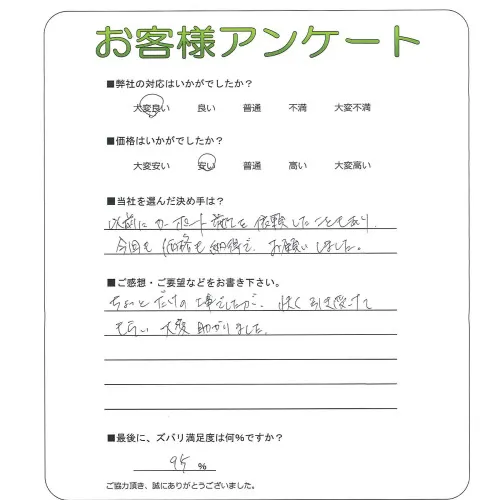 お客様アンケート
■弊社の対応はいかがでしたか？
大変良い 良い 普通 不満 大変不満
■価格はいかがでしたか？
大変安い 安い 普通 高い 大変高い
■当社を選んだ決め手は？
以前にカーポート施工を依頼したこともあり、
今回も価格も納得で、お願いしました。
■ご感想・ご要望などをお書き下さい。
ちょっとだけの工事でしたが、快く引き受けて
もらい大変助かりました。
■最後に、ズバリ満足度は何%ですか？
95 %
ご協力頂き、誠にありがとうございました。